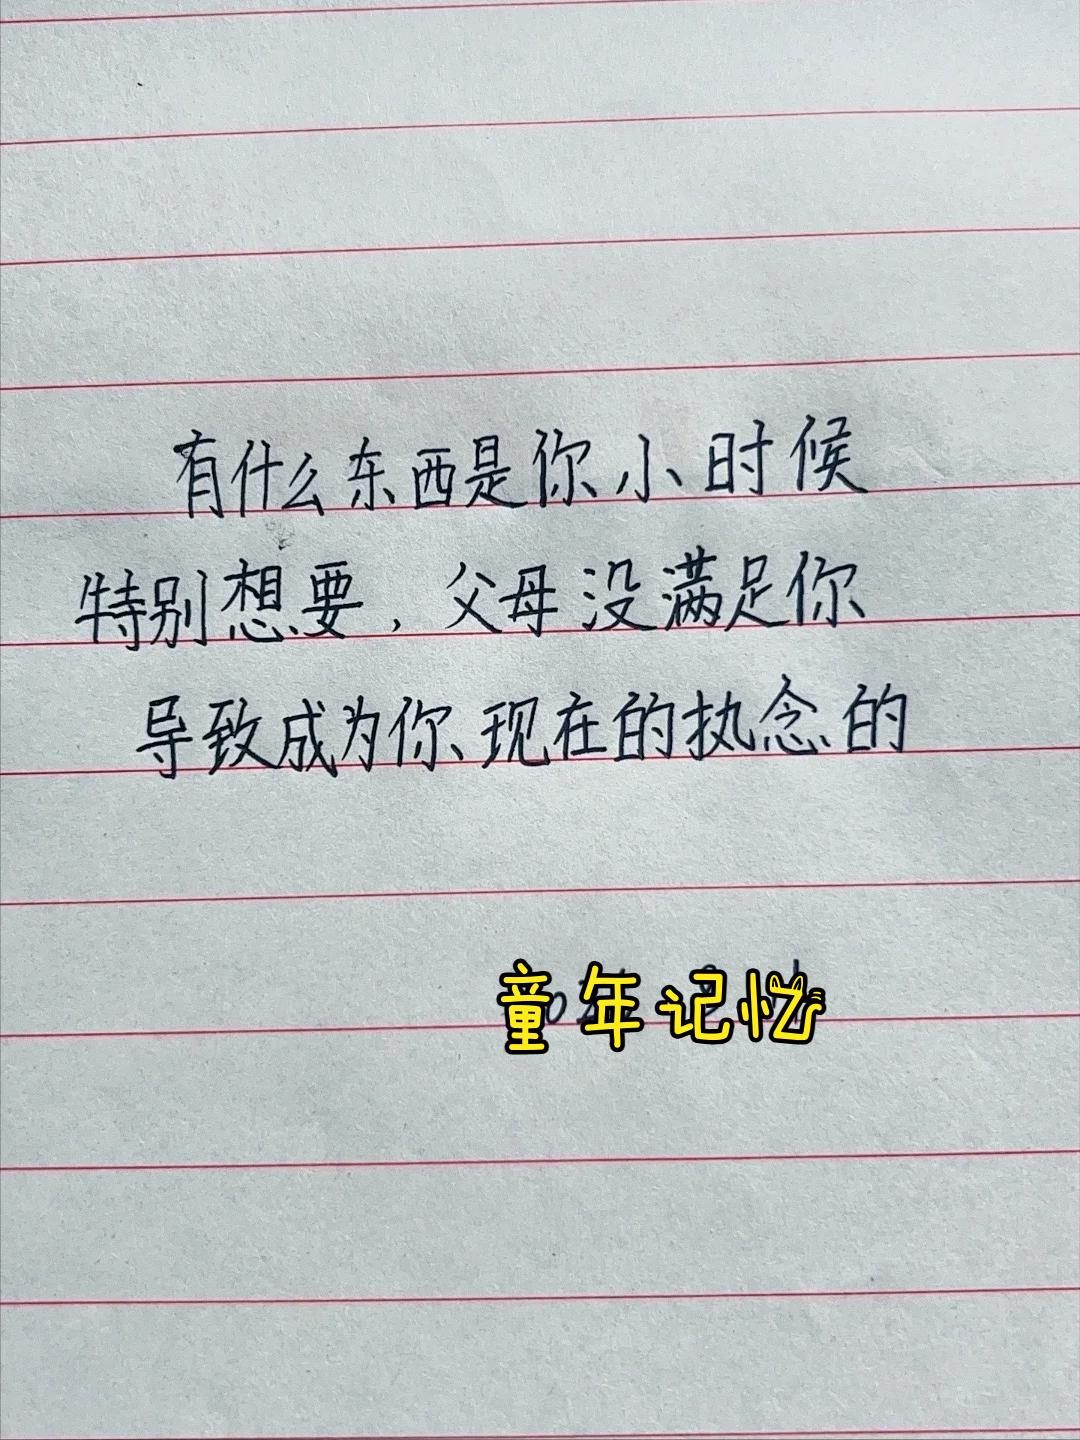 有什么东西是你小时候
特别想要，父母没满足你
导致成为你现在的执念的
童年记忆